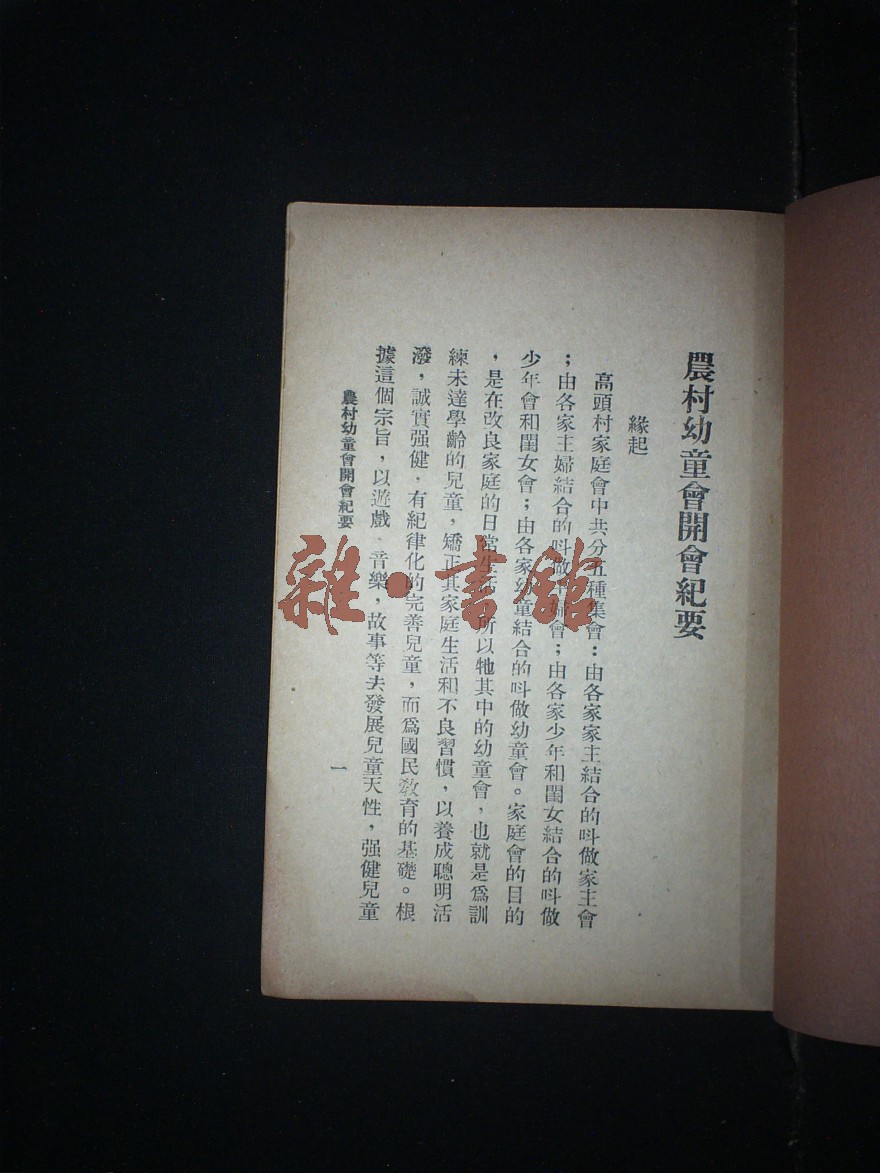 農村幼童會開會紀要
緣起
高頭村家庭會中共分五種集會：由各家家主結合的呌做家主會
；由各家主婦結合的呌做主婦會；由各家少年和閨女結合的呌做
少年會和閨女會；由各家幼童結合的呌做幼童會。家庭會的目的
，是在改良家庭的日常生活，所以牠其中的幼童會，也就是爲訓
練未達學齡的兒童，矯正其家庭生活和不良習慣，以養成聰明活
潑，誠實强健，有紀律化的完善兒童，而爲國民敎育的基礎。根
據這個宗旨，以遊戲、音樂，故事等去發展兒童天性，强健兒童
農村幼童會開會紀要
一
雜·書館